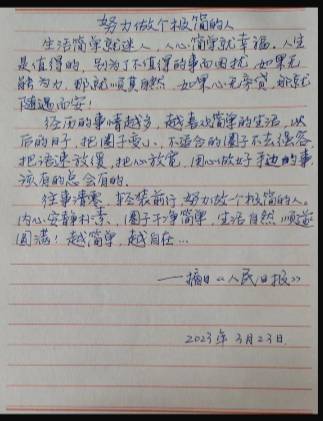 努力做个极简的人
生活简单就迷人，人心简单就幸福。人生
是值得的，别为了不值得的事而困扰，如果无
能为力，那就顺其自然，如果心无旁贷，那就
随遇而安！
经历的事情越多，越喜欢简单的生活，以
后的日子，把圈子变小，不适合的圈子不去强容，
把语速放缓，把心放宽，用心做好手边的事，
该有的总会有的。
往事清零，轻装前行，努力做一个极简的人。
内心安静朴素，圈子干净简单，生活自然顺遂
圆满！越简单，越自在…
——摘自《人民日报》
2023年3月23日